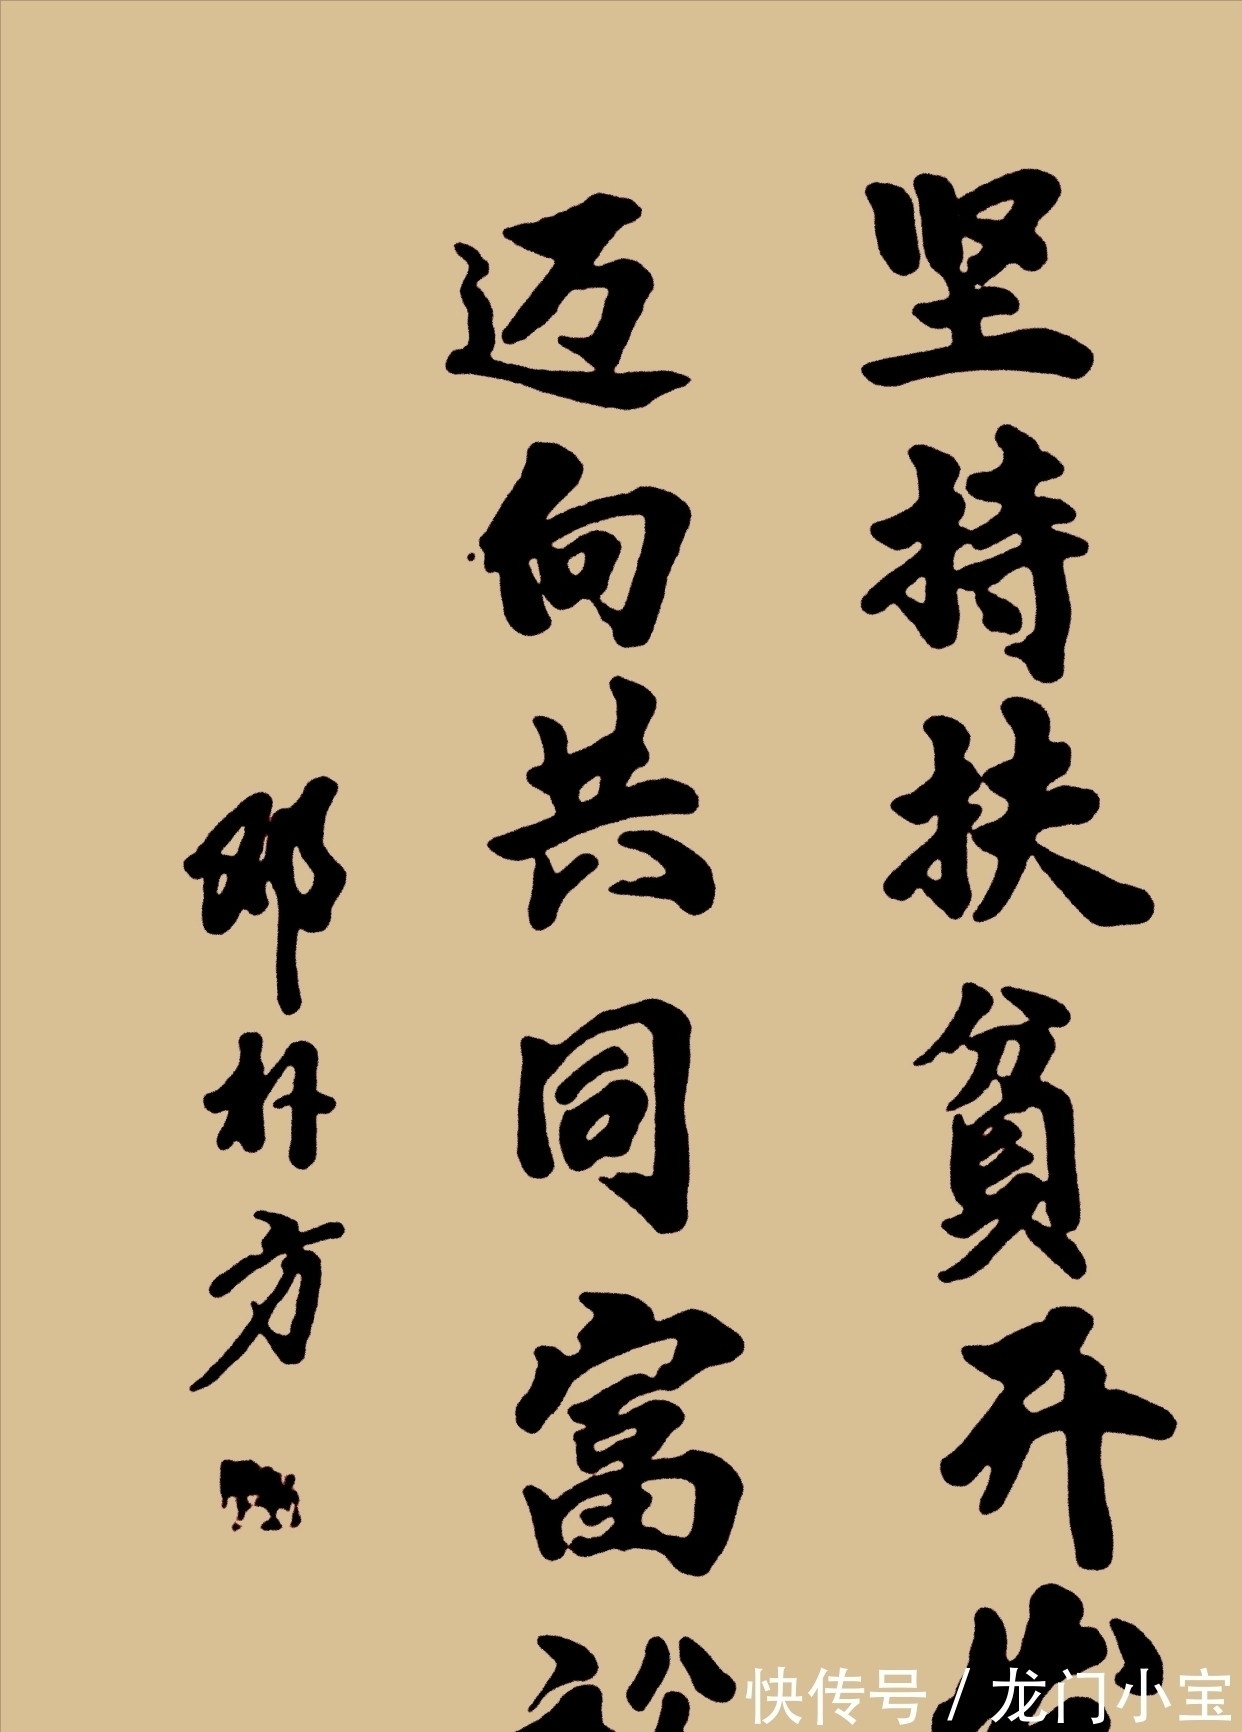 坚持扶貧开发
迈向共同富裕
邓朴方
快传号 / 龙门小宝